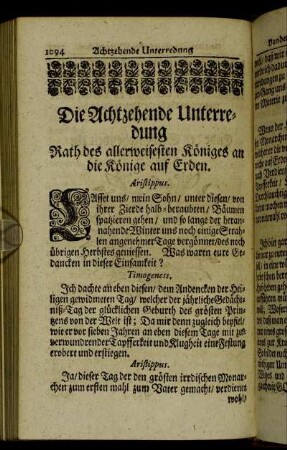 1094 Achtzehende Unterredung
Die Achtzehende Unterre-
dung
Rath des allerweisesten Königes an
die Könige auf Erden.
Aristippus.
LAsset uns/ mein Sohn/ unter diesen/ von
ihrer Zierde halb-beraubten/ Bäumen
spatzieren gehen/ und so lange der heran-
nahende Winter uns noch einige Strah-
len angenehmer Tage vergönnet/ des noch
übrigen Herbstes geniessen. Was waren eure Ge-
dancken in dieser Einsamkeit?
Timogenes.
Ich dachte an eben diesen/ dem Andencken der Hei-
ligen gewidmeten Tag/ welcher der jährliche Gedächt-
niß/Tag der glücklichen Geburth des grösten Prin-
tzens von der Welt ist; Da mir denn zugleich beyfiel/
wie er vor sieben Jahren an eben diesem Tage mit zu
verwundrender Tapfferkeit und Klugheit eine Festung
erobert und erstiegen.
Aristippus.
Ja/ dieser Tag der den grösten irrdischen Monar-
chen zum ersten mahl zum Vater gemacht/ verdienet
wohl/